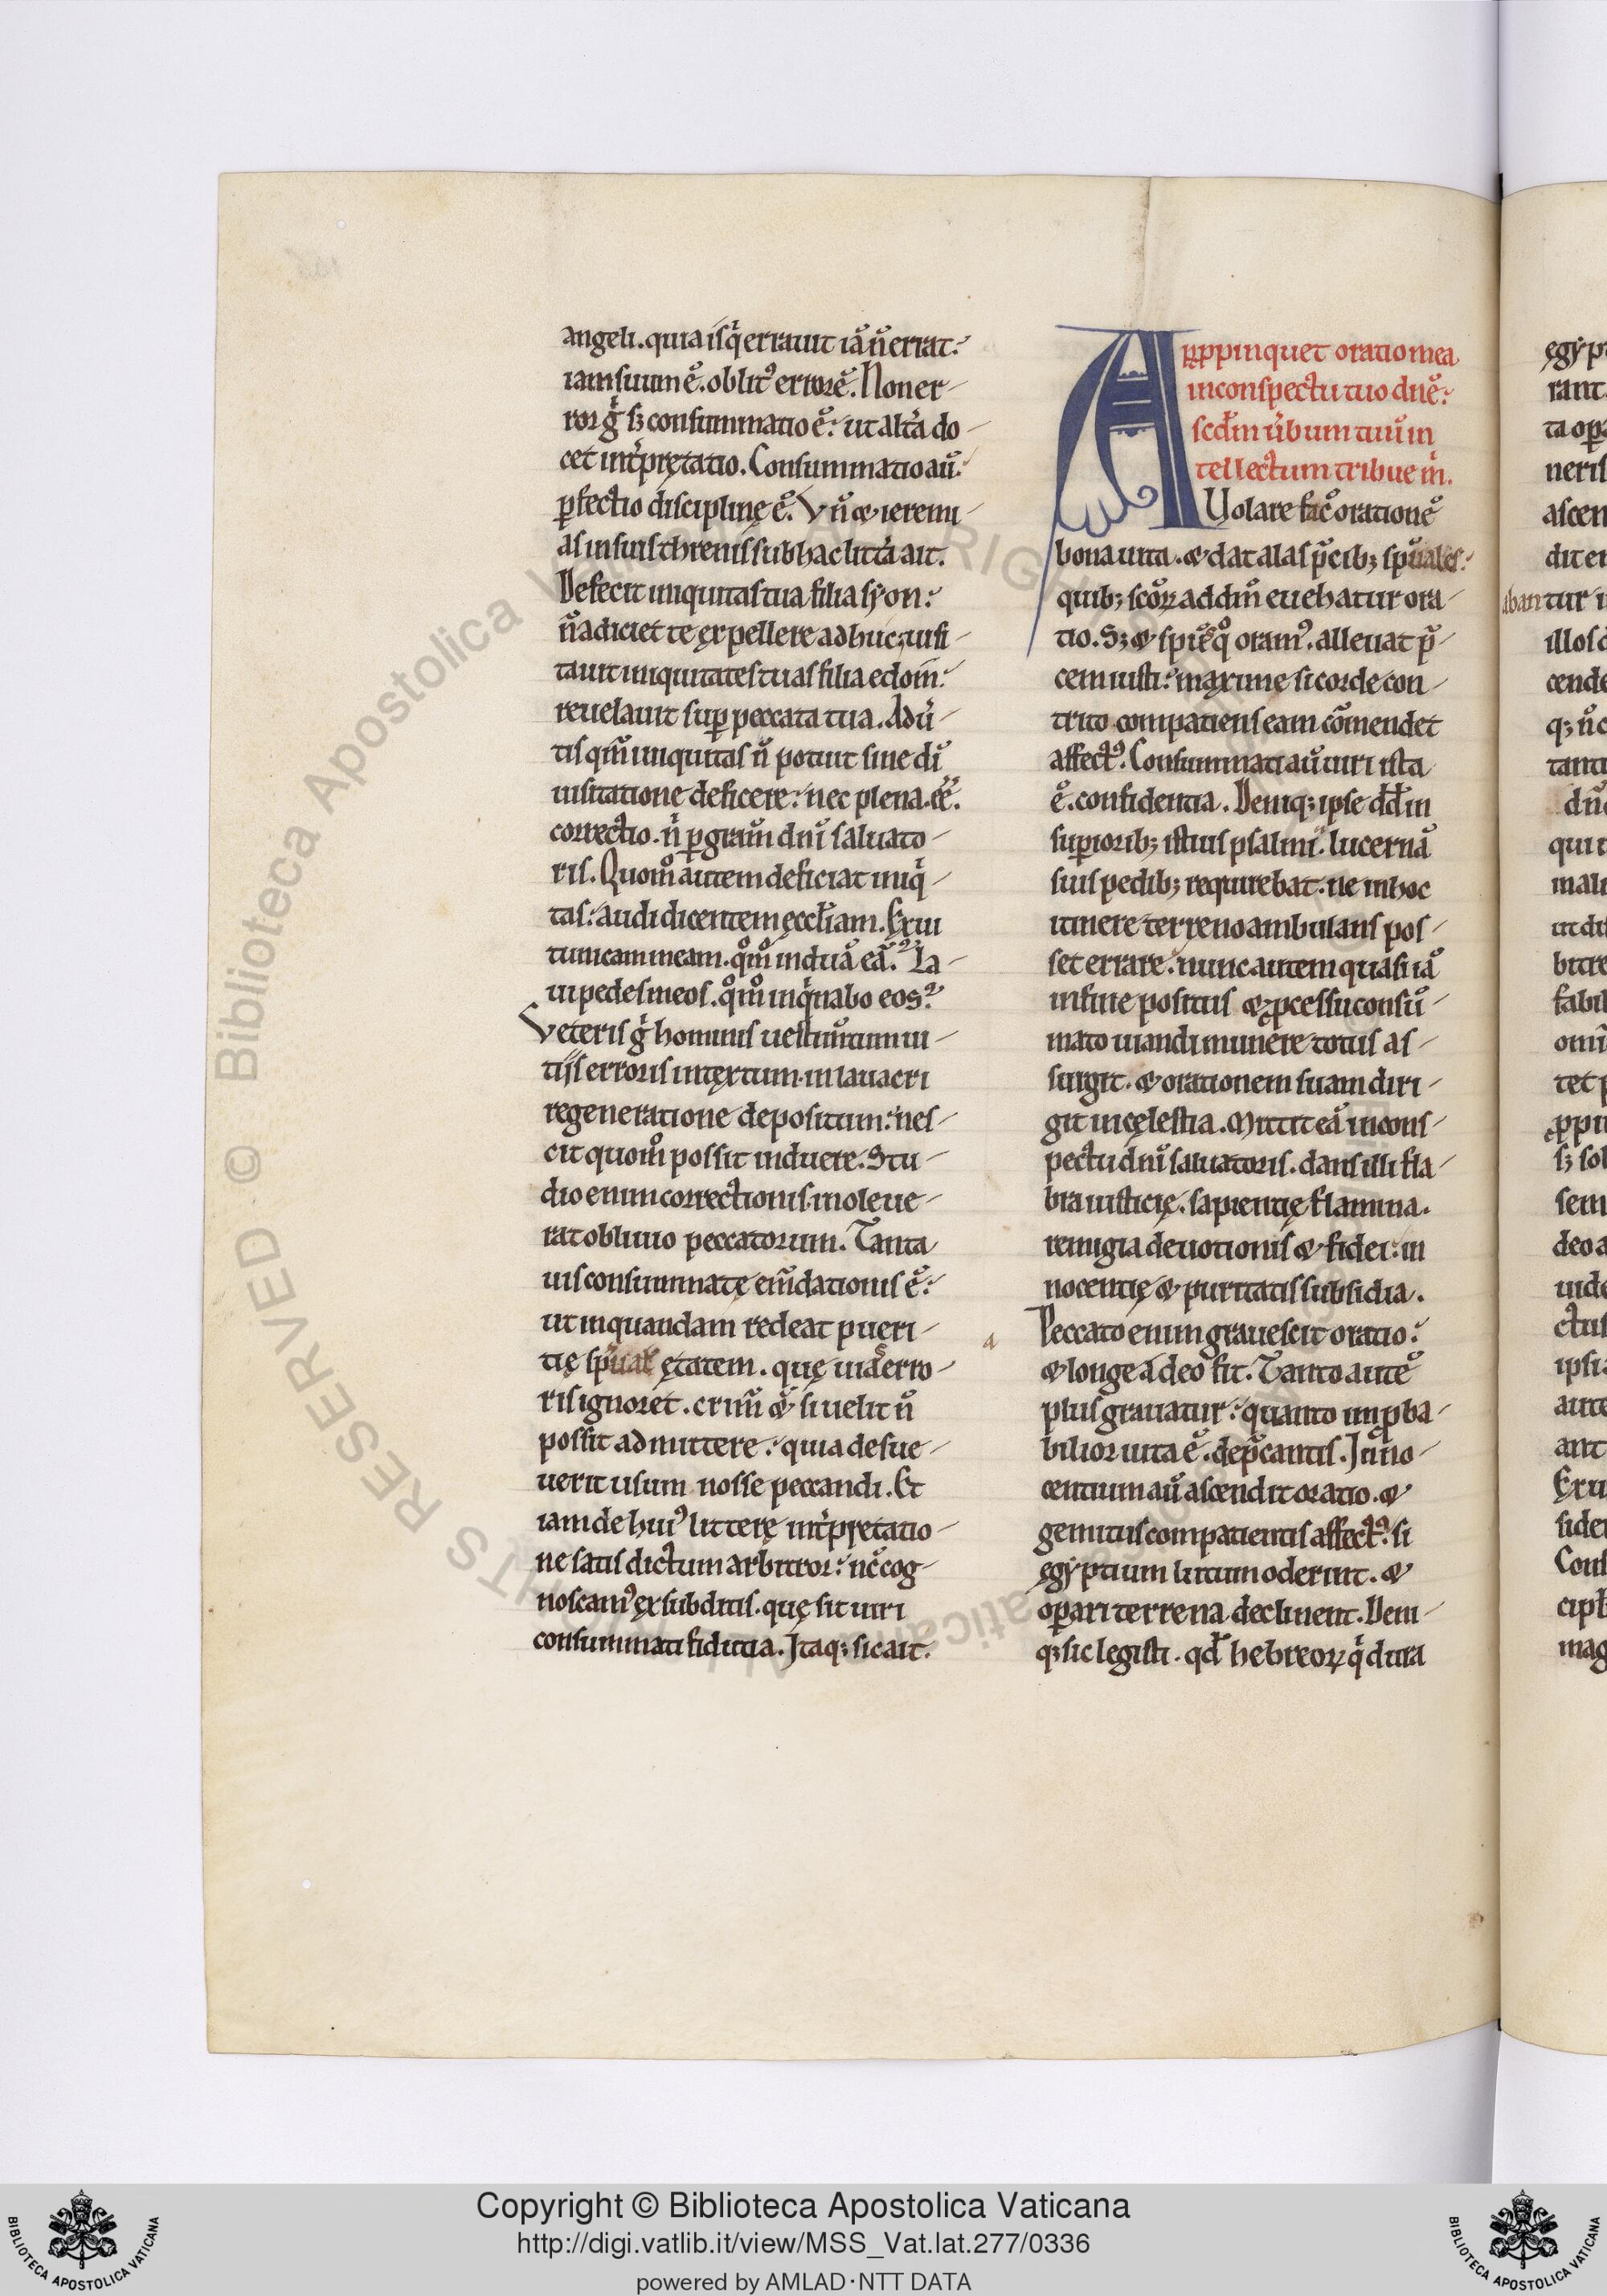 angeli. quia is qͥ errauit iā n̄ errat.
iam suum ē. oblitꝰ errorē. Non er-
ror gͦ sꝫ consummatio ē. ut altͣa do-
cet int̄pretatio. Consummatio aū.
ꝑfectio disciplinę ē. Vn̄ & ieremi-
as in suis threnis sub hac litt̄a ait.
Defecit iniquitas tua filia syon.
n̄ adiciet te expellere adhuc. uisi-
tauit iniquitates tuas filia edom̄.
reuelauit suꝑ peccata tua. Adū-
tis qm̄ iniquitas n̄ potuit sine di
uisitatione deficere. nec plena. ēē.
correctio. n̄ ꝑ gram̄ dnī saluato-
ris. Quom̊ autem deficiat iniqͥ-
tas. audi dicentem ęccl̄iam. Exui
tunicam meam. qͦm̊ induā eā. La-
ui pedes meos. qͦm̊ inqͥnabo eos.
Veteris gͦ hominis uestim̄tum ui-
tiis erroris intextum. in lauacri
regeneratione depositum. nes-
cit quom̊ possit induere. Stu-
dio enim correctionis. inoleue-
rat obliuio peccatorum. Tanta
uis consummatę em̄dationis ē.
ut in quandam redeat pueri-
tię sp̄ual ętatem. quę uiā erro-
ris ignoret. crim̄ & si uelit n̄
possit admittere. quia desue-
uerit usum nosse peccandi. Et
iam de huiꝰ litterę int̄pretatio-
ne satis dictum arbitror. nc̄ cog-
noscamꝰ ex subditis. quę sit uiri
consummati fidutia. Itaqꝫ sic ait.
Aꝓpinquet oratio mea
in conspectu tuo dnē.
scd̄m ūbum tuū in
tellectum tribue m̄.
Uolare fac̄ orationē
bona uita. & dat alas p̄cibꝫ sp̄uales.
quibꝫ scōꝝ ad dm̄ euehatur ora-
tio. Sꝫ & spūs qͦ oramꝰ. alleuat p̄-
cem iusti. maxime si corde con-
trito compatiens eam cōmendet
affectꝰ. Consummati aū uiri ista
ē. confidentia. Deniqꝫ ipse dd̄ in
suꝑioribꝫ istius psalmi. lucernā
suis pedibꝫ requirebat. ne in hoc
itinere terreno ambulans pos-
set errare. nunc autem quasi iā
in fine positus & ꝓcessu consū-
mato uiandi munere totus as-
surgit. & orationem suam diri-
git in cęlestia. Mittit eā in cons-
pectu dnī saluatoris. dans illi fla-
bra iusticię. sapientię flamina.
remigia deuotionis & fidei. in
nocentię & puritatis subsidia.
Peccato enim grauescit oratio.
& longe a deo fit. Tanto autē
plus grauatur. quanto imꝓba-
bilior uita ē. dep̄cantis. Inno-
centium aū ascendit oratio. &
gemitus compatientis affectꝰ. si
egyptium lutum oderint. &
oꝑari terrena declinent. Deni-
qꝫ sic legisti. qd̄ hebreoꝝ qͥ dura
Copyright © Biblioteca Apostolica Vaticana
http://digi.vatlib.it/view/MSS_Vat.lat.277/0336
powered by AMLAD·NTT DATA